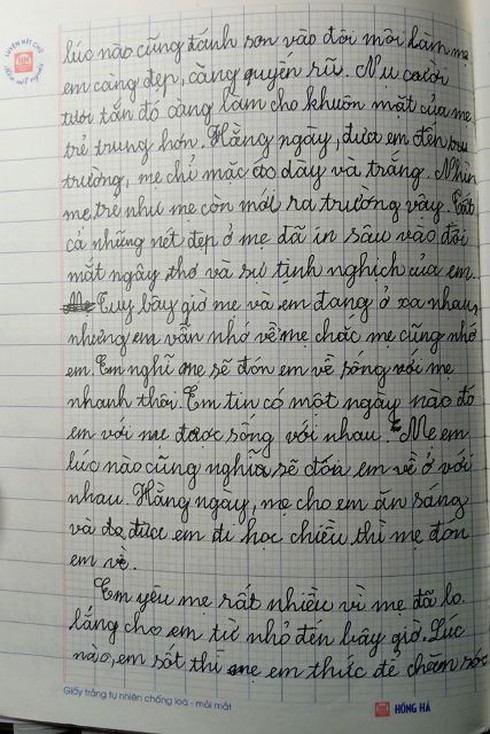 LUYỆN NÉT CHỮ
RÈN NẾT NGƯỜI
lúc nào cũng đánh son vào đôi môi làm mẹ
em càng đẹp, càng quyến rũ. Nụ cười
tươi tắn đó càng làm cho khuôn mặt của mẹ
trẻ trung hơn. Hằng ngày, đưa em đến
trường, mẹ chỉ mặc áo dày và trắng. Nhìn
mẹ trẻ như mẹ còn mới ra trường vậy. Tất
cả những nét đẹp ở mẹ đã in sâu vào đôi
mắt ngây thơ và sự tịnh nghịch của em.
Tuy bây giờ mẹ và em đang ở xa nhau,
nhưng em vẫn nhớ về mẹ chắc mẹ cũng nhớ
em. Em nghĩ mẹ sẽ đón em về sống với mẹ
nhanh thôi. Em tin có một ngày nào đó
em với mẹ được sống với nhau. Mẹ em
lúc nào cũng nghĩ sẽ đón em về ở với
nhau. Hằng ngày, mẹ cho em ăn sáng
và đưa em đi học chiều thì mẹ đón
em về.
Em yêu mẹ rất nhiều vì mẹ đã lo
lắng cho em từ nhỏ đến bây giờ. Lúc
nào, em sốt thì mẹ em thức để chăm sóc
Giấy trắng tự nhiên chống loá - mỏi mắt
HỒNG HÀ